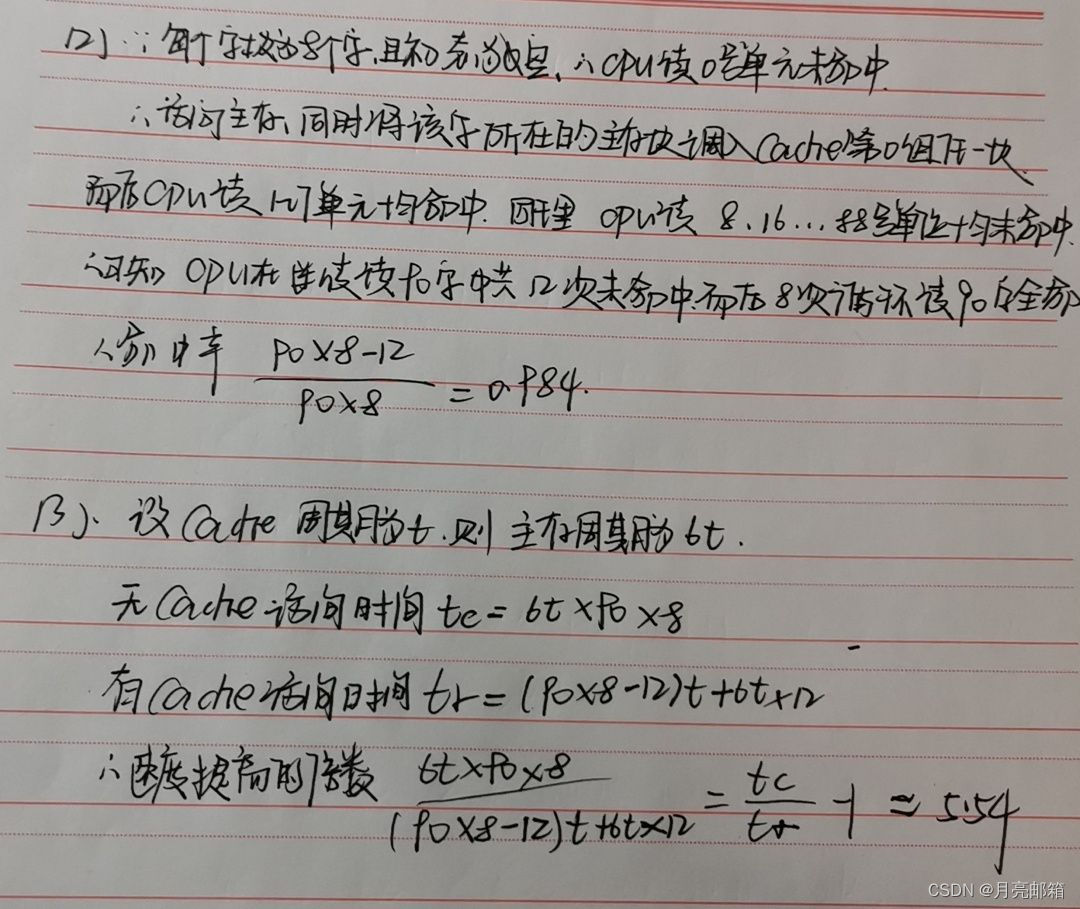 (2) ∵ 每个字块为8个字,且初态为空, ∴ CPU读0号单元未命中.
∴ 访问主存,同时将该字所在的主存块调入Cache第0组任一块.
而后CPU读1~7单元均命中. 同理 CPU读 8、16...88号单位均未命中.
∴ 可知 CPU在连续读90字中共12次未命中,而后8次循环读90字全命
∴ 命中率 \frac{90×8-12}{90×8} = 0.984.
(3)、设 Cache 周期为t.则主存周期为6t.
无Cache访问时间 tc = 6t×90×8
有Cache访问时间 tr = (90×8-12)t+6t×12
∴ 速度提高的倍数 \frac{6t×90×8}{(90×8-12)t+6t×12} = \frac{tc}{tr} -1 ≈ 5.54
CSDN @月亮邮箱